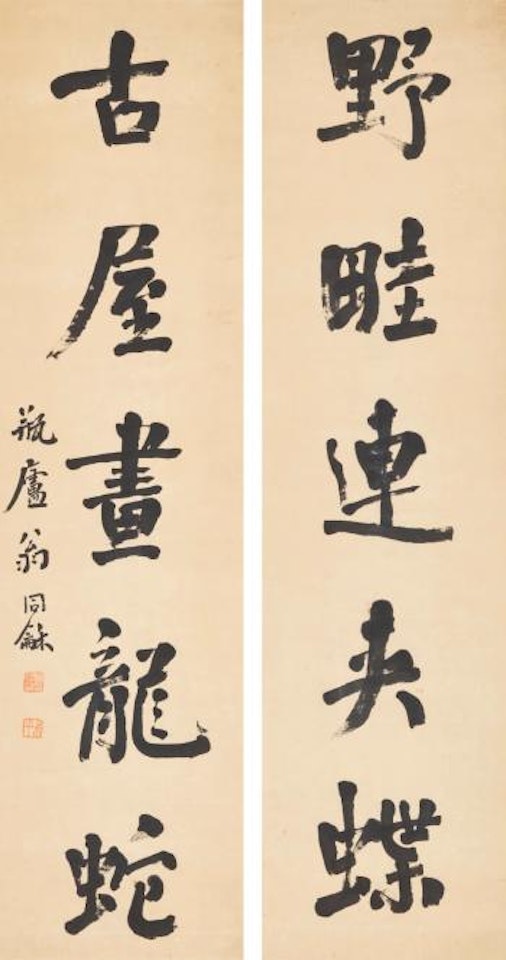 野畦連夾蝶
古屋畫龍蛇
瓶廬翁同龢